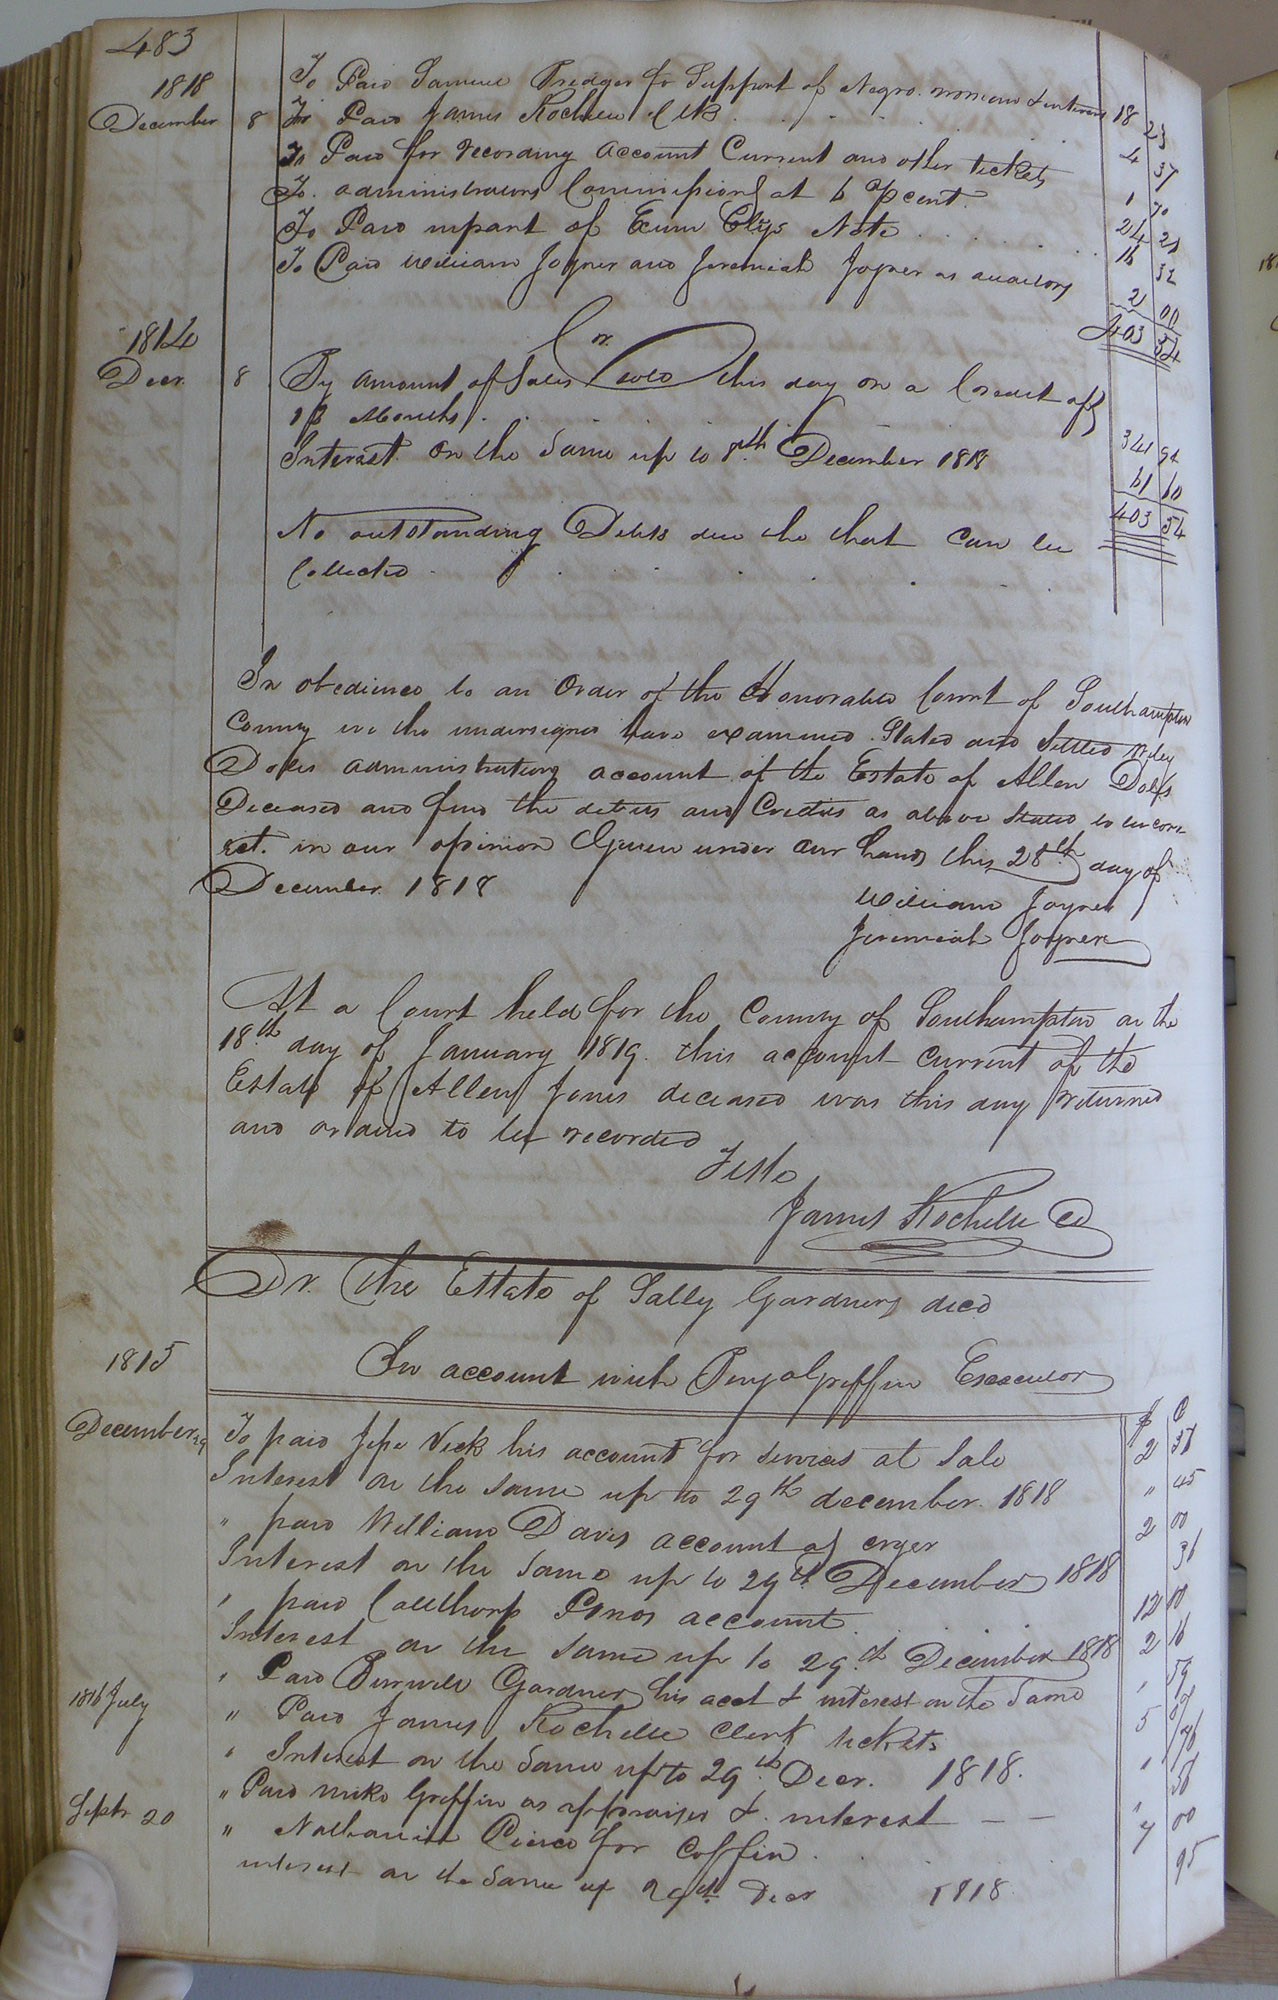 483
1818
To Paid Samuel Bridger for Support of Negro woman & interest 18 23
December 8 To Paid James Rochelle Clk 4 37
To Paid for recording account Current and other tickets 1 70
To administrators Commissions at 6 pcent 24 21
To Paid in part of Exum Elys Note 16 32
To Paid William Joyner and Jeremiah Joyner as auditors 2 00
403 54
Cr.
1814
Decr. 8 By amount of Sales Sold this day on a Credit of
18 Months 341 94
Interest on the Same up to 8th December 1818 61 60
403 54
No outstanding Debts due the that can be
Collected
In obedience to an Order of the Honorable Court of Southampton
County we the undersigned have examined Stated and Settled Wiley
Doles administrations account of the Estate of Allen Doles
Deceased and find the debits and Credits as above Stated to be corr
rect. in our opinion Given under our hands this 28th day of
December 1818
William Joyner
Jeremiah Joyner
At a Court held for the County of Southampton on the
18th day of January 1819. this account current of the
Estate of Allen Jones deceased was this day returned
and ordered to be recorded
Teste
James Rochelle CC
Dr. The Estate of Sally Gardner decd
1815
In account with Benja Griffin Executor
$ C
December 29 To paid Jesse Vick his account for services at Sale 2 37
Interest on the same up to 29th december 1818 " 45
" paid William Davis account as cryer 2 00
Interest on the Same up to 29th December 1818 36
" paid account 12 00
Interest on the same up to 29th December 1818 2 16
" Paid Burwell Gardner his acct & interest on the Same " 59
1816 July " Paid James Rochelle Clerk tickets 5
" Interest on the Same up to 29th Decr. 1818.
" Paid Griffin as appraiser & interest
Septr 20 " Nathaniel Pierce for Coffin 7 00
interest on the Same up 29th Decr 1818 95